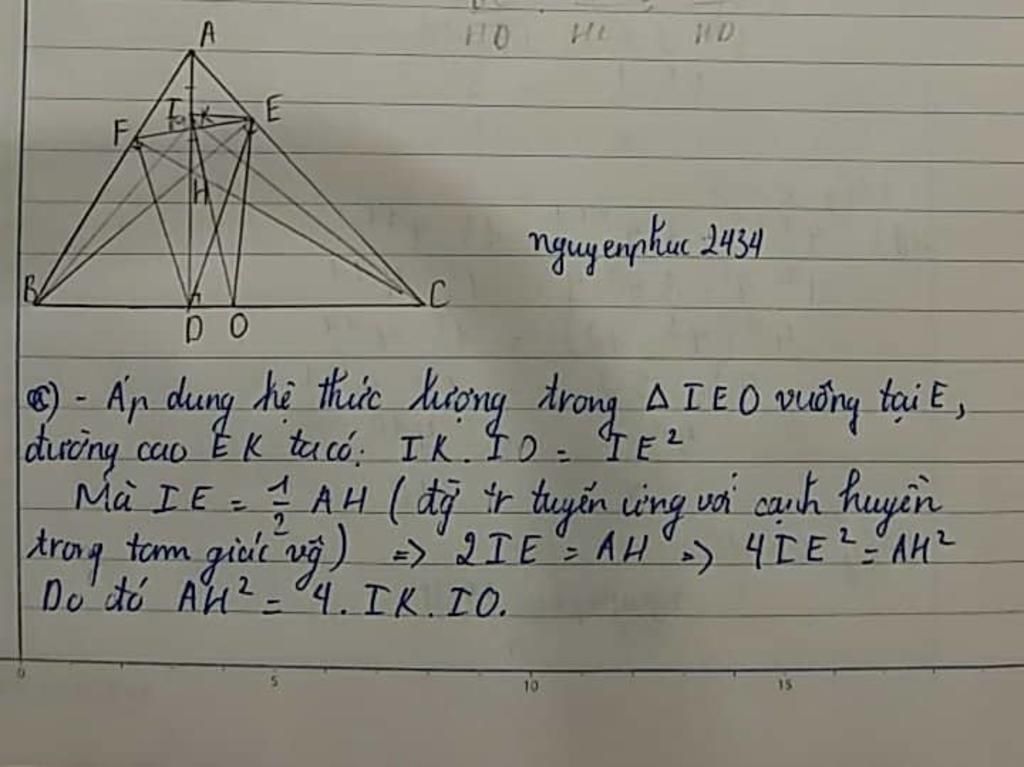 A
I K E
F
H
nguyenphuc 2434
B C
D O
c) - Áp dụng hệ thức lượng trong Δ IEO vuông tại E,
đường cao EK ta có: IK. IO = IE²
Mà IE = 1/2 AH (đg tr tuyến ứng với cạnh huyền
trong tam giác vg) => 2IE = AH => 4IE² = AH²
Do đó AH² = 4. IK. IO.
0 5 10 15